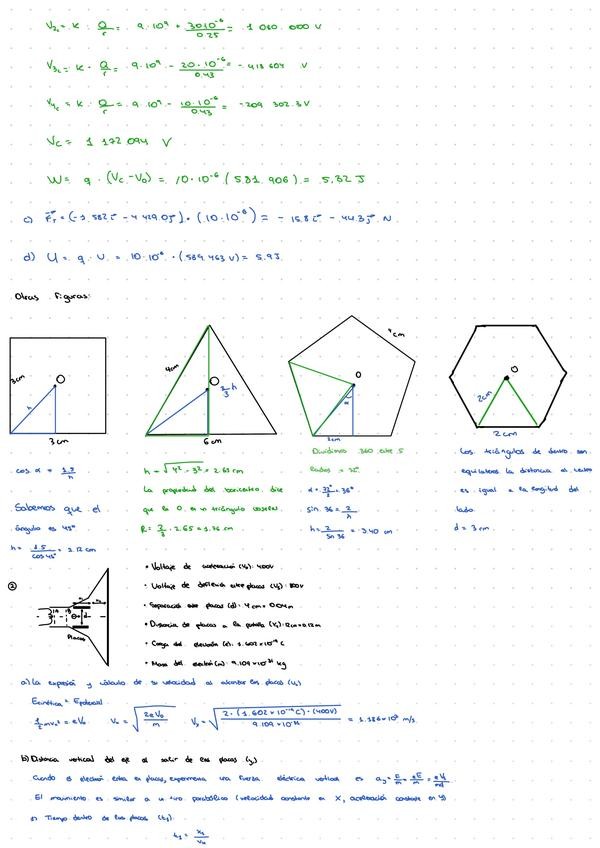 V₂c = K · Q/r = 9·10⁹ · 30·10⁻⁶/0.25 = 1 080.000 V
V₃c = K · Q/r = 9·10⁹ · -20·10⁻⁶/0.43 = -418 604 V
V₄c = K · Q/r = 9·10⁹ - 10·10⁻⁶/0.43 = -209 302.3V
Vc = 1 172 094 V
W = q · (Vc-V₀) = 10·10⁻⁶ (581.906) = 5,32 J
c)
d) U = q · U = 10·10⁻⁶ · (589.463 V) = 5.9J
Otras Figuras:
3cm
h
O
3 cm
4cm
O
2/3 h
6 cm
4cm
O
α
2cm
O
2cm
2 cm
cos α = 1.5/h
Sabemos que el
ángulo es 45°
h = 1.5/cos 45° = 2.12 cm
h = √4² - 3² = 2.65 cm
La propiedad del baricentro dice
que la O, en un triángulo
R = 2/3 · 2.65 = 1.76 cm
Dividimos 360 entre 5
lados = 72°
α = 72°/2 = 36°
sin 36 = 2/h
h = 2/sin 36 = 3.40 cm
Los triángulos de dentro son
equilateros la distancia al centro
es igual a la longitud del
lado.
d = 3 cm
②
Placas
• Voltaje de aceleración (V₀): 400V
• Voltaje de deflexión entre placas (Vd): 100V
• Separación entre placas (d): 4 cm = 0.04m
• Distancia de placas a la pantalla 12cm = 0.12m
• Carga del electrón (e): 1.602×10⁻¹⁹ C
• Masa del electrón (m): 9.109×10⁻³¹ kg
a) La expresión y cálculo de su velocidad al alcanzar las placas
Ecinética = Epotencial
1/2 mvₓ² = eV₀ Vₓ = √2eV₀/m Vₓ = √2·(1.602×10⁻¹⁹ C)·(400V)/9.109×10⁻³¹ = 1.186×10⁷ m/s
b) Distancia vertical del eje al salir de las placas
Cuando el electrón entra en placas, experimenta una fuerza eléctrica vertical
El movimiento es similar a un tiro parabólico (velocidad constante en X, aceleración constante en Y)
Tiempo dentro de las placas (t₁)
t₁ = x₁/vₓ